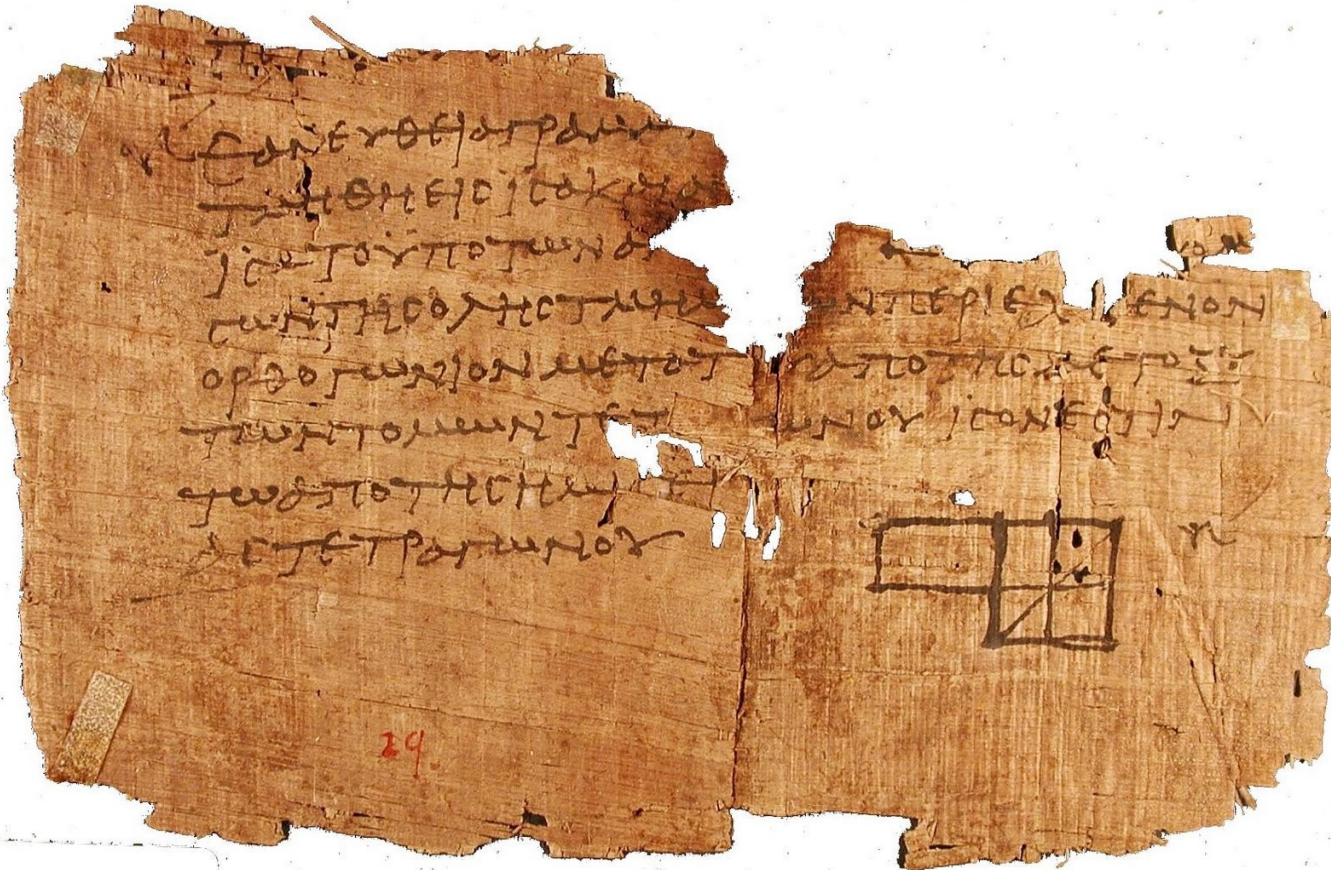 ΕΑΝ ΕΥΘΕΙΑ ΓΡΑΜ
ΤΜΗΘΗ ΕΙϹ ΙϹΑ ΚΑΙ Α
ΙϹΑ ΤΟ ΥΠΟ ΤΩΝ Α
ϹΩΝ ΤΗϹ ΟΛΗϹ ΤΜΗΜ ΩΝ ΠΕΡΙΕΧ ΜΕΝΟΝ
ΟΡΘΟΓΩΝΙΟΝ ΜΕΤΑ Τ ΑΠΟ ΤΗϹ ΜΕΤΑΞΥ
ΤΩΝ ΤΟΜΩΝ ΤΕΤ ΩΝΟΥ ΙϹΟΝ ΕϹΤΙΝ
ΤΩ ΑΠΟ ΤΗϹ ΗΜΙ ΕΙ
ΑϹ ΤΕΤΡΑΓΩΝΟΥ
29